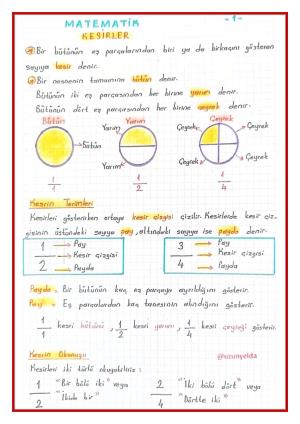 MATEMATİK
-1-
KESİRLER
Bir bütünün eş parçalarından biri ya da birkaçını gösteren
sayıya kesir denir.
Bir nesnenin tamamına bütün denir.
Bütünün iki eş parçasından her birine yarım denir.
Bütünün dört eş parçasından her birine çeyrek denir.
Bütün Yarım Çeyrek
Bütün Yarım Yarım Çeyrek Çeyrek Çeyrek
1/1 1/2 1/4
Kesrin Terimleri
Kesirleri gösterirken ortaya kesir çizgisi çizilir. Kesirlerde kesir çiz-
gisinin üstündeki sayıya pay, altındaki sayıya ise payda denir.
1 → Pay 3 → Pay
→ Kesir çizgisi → Kesir çizgisi
2 → Payda 4 → Payda
Payda: Bir bütünün kaç eş parçaya ayrıldığını gösterir.
Pay: Eş parçalardan kaç tanesinin alındığını gösterir.
1/1 kesri bütünü, 1/2 kesri yarımı, 1/4 kesri çeyreği gösterir.
Kesrin Okunuşu
Kesirleri iki türlü okuyabiliriz:
1/2 "Bir bölü iki" veya 2/4 "İki bölü dört" veya
"İkide bir" "Dörtte iki"